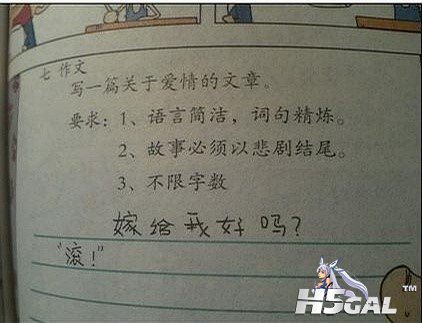 七 作文
写一篇关于爱情的文章。
要求：1、语言简洁，词句精炼。
2、故事必须以悲剧结尾。
3、不限字数
嫁给我好吗？
“滚！”
H5GAL™